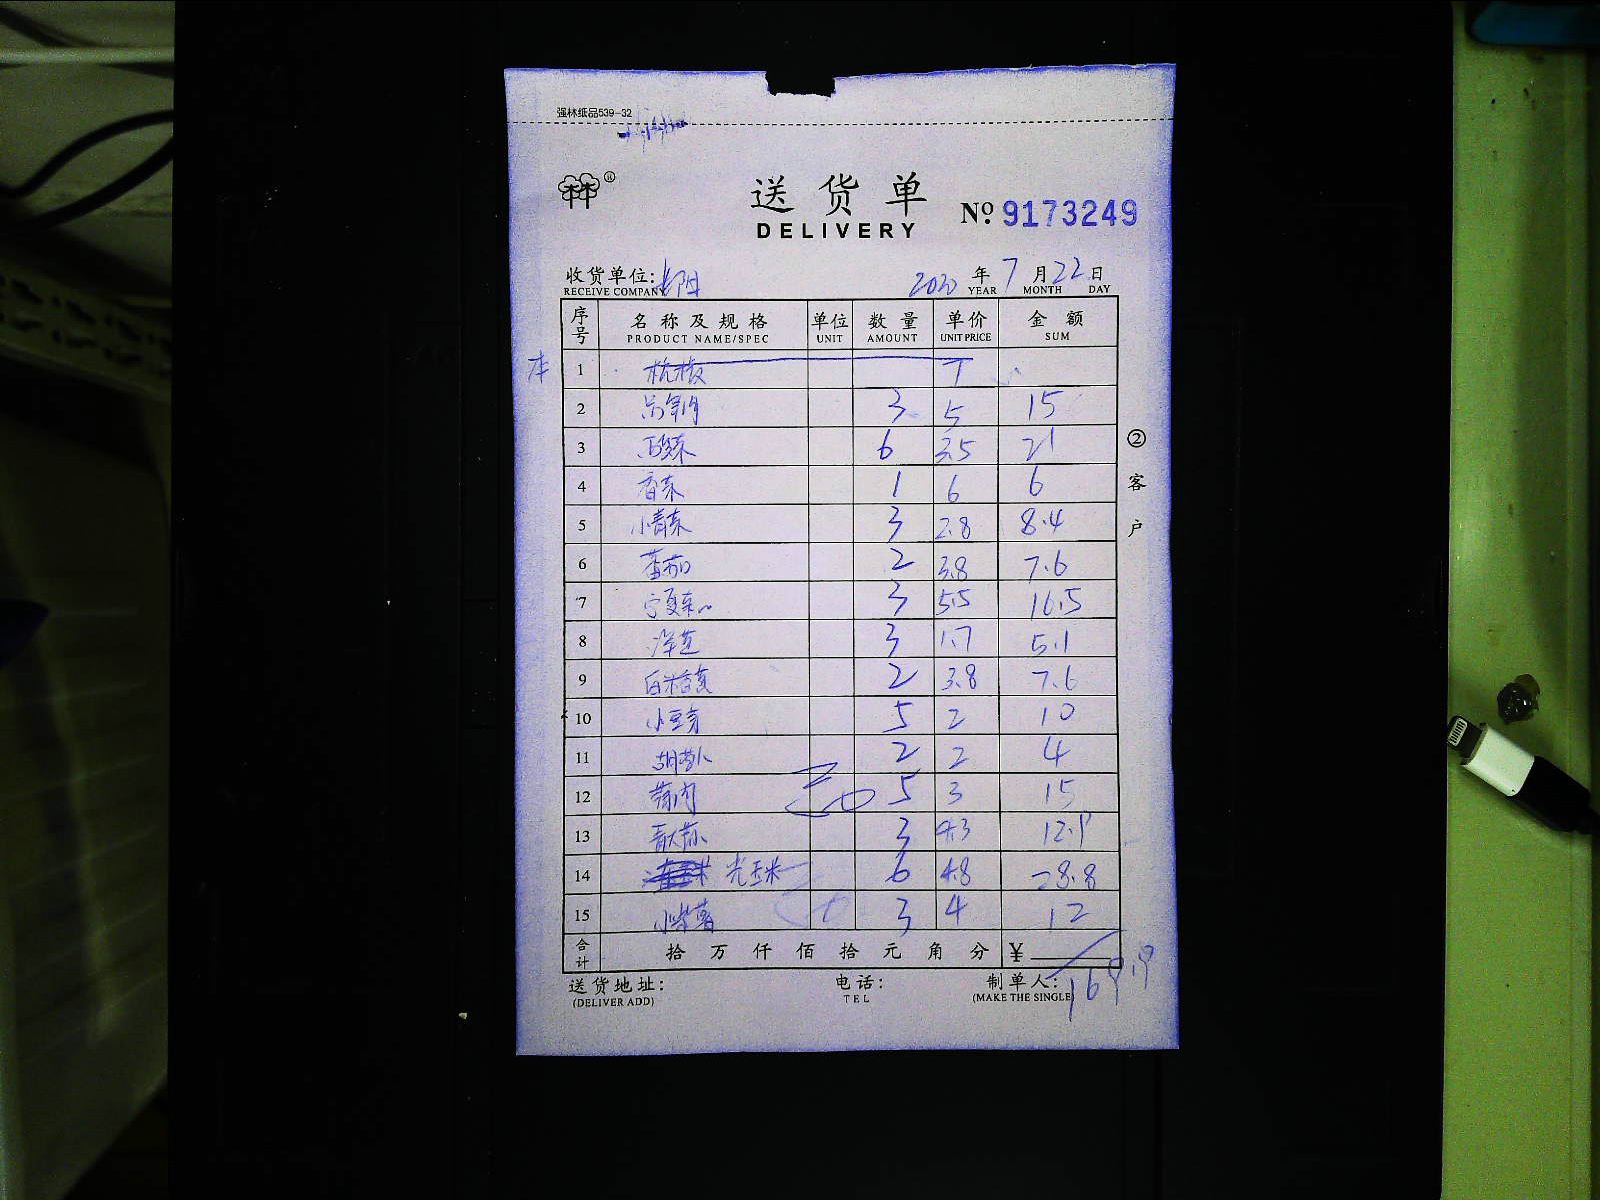 强林纸品539-32
林 ®
送货单
DELIVERY
No. 9173249
收货单位: 2020 年 7 月 22 日
RECEIVE COMPANY YEAR MONTH DAY
序号 名称及规格 单位 数量 单价 金额
PRODUCT NAME/SPEC UNIT AMOUNT UNIT PRICE SUM
1 杭椒 7
2 3 5 15
3 6 3.5 21
4 香菜 1 6 6
5 小青菜 3 2.8 8.4
6 2 3.8 7.6
7 宁夏菜心 3 5.5 16.5
8 3 1.7 5.1
9 2 3.8 7.6
10 小豆芽 5 2 10
11 胡萝卜 2 2 4
12 5 3 15
13 3 4.3 12.9
14 光玉米 6 4.8 28.8
15 小紫薯 3 4 12
合计 拾 万 仟 佰 拾 元 角 分 ¥
169.9
送货地址: 电话: 制单人:
(DELIVER ADD) TEL (MAKE THE SINGLE)
②客户